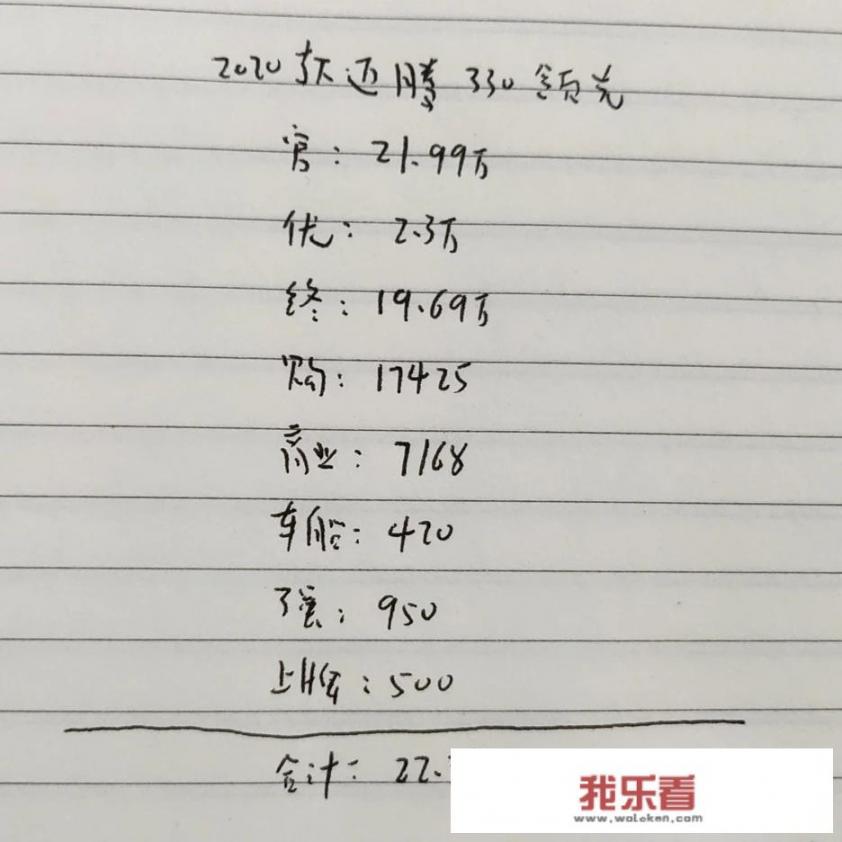 2020款迈腾 330 领先
官: 21.99万
优: 2.3万
终: 19.69万
购: 17425
商业: 7168
车船: 420
强: 950
上牌: 500
合计: 22.
我乐看
www.woleken.com